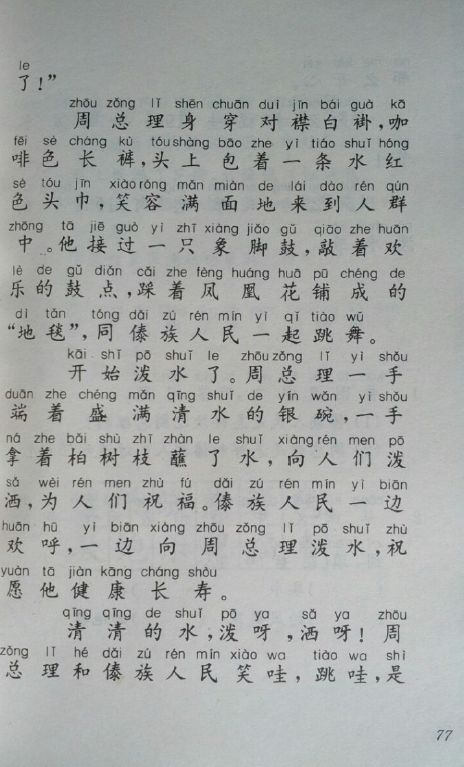 le
了！”
zhōu zǒng lǐ shēn chuān duì jīn bái guà kā
周总理身穿对襟白褂，咖
fēi sè cháng kù tóu shàng bāo zhe yì tiáo shuǐ hóng
啡色长裤，头上包着一条水红
sè tóu jīn xiào róng mǎn miàn de lái dào rén qún
色头巾，笑容满面地来到人群
zhōng tā jiē guò yì zhī xiàng jiǎo gǔ qiāo zhe huān
中。他接过一只象脚鼓，敲着欢
lè de gǔ diǎn cǎi zhe fèng huáng huā pū chéng de
乐的鼓点，踩着凤凰花铺成的
dì tǎn tóng dǎi zú rén mín yì qǐ tiào wǔ
“地毯”，同傣族人民一起跳舞。
kāi shǐ pō shuǐ le zhōu zǒng lǐ yì shǒu
开始泼水了。周总理一手
duān zhe chéng mǎn qīng shuǐ de yín wǎn yì shǒu
端着盛满清水的银碗，一手
ná zhe bǎi shù zhī zhàn le shuǐ xiàng rén men pō
拿着柏树枝蘸了水，向人们泼
sǎ wèi rén men zhù fú dǎi zú rén mín yì biān
洒，为人们祝福。傣族人民一边
huān hū yì biān xiàng zhōu zǒng lǐ pō shuǐ zhù
欢呼，一边向周总理泼水，祝
yuàn tā jiàn kāng cháng shòu
愿他健康长寿。
qīng qīng de shuǐ pō ya sǎ ya zhōu
清清的水，泼呀，洒呀！周
zǒng lǐ hé dǎi zú rén mín xiào wa tiào wa shì
总理和傣族人民笑哇，跳哇，是
77